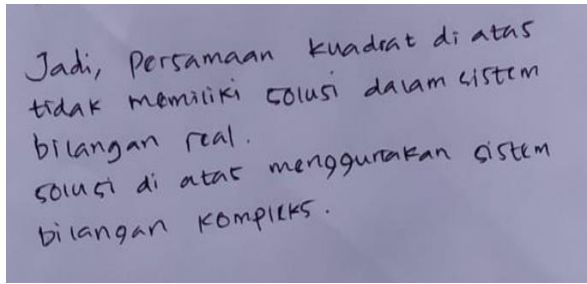 Jadi, Persamaan kuadrat di atas
tidak memiliki solusi dalam sistem
bilangan real.
solusi di atas menggunakan sistem
bilangan kompleks.